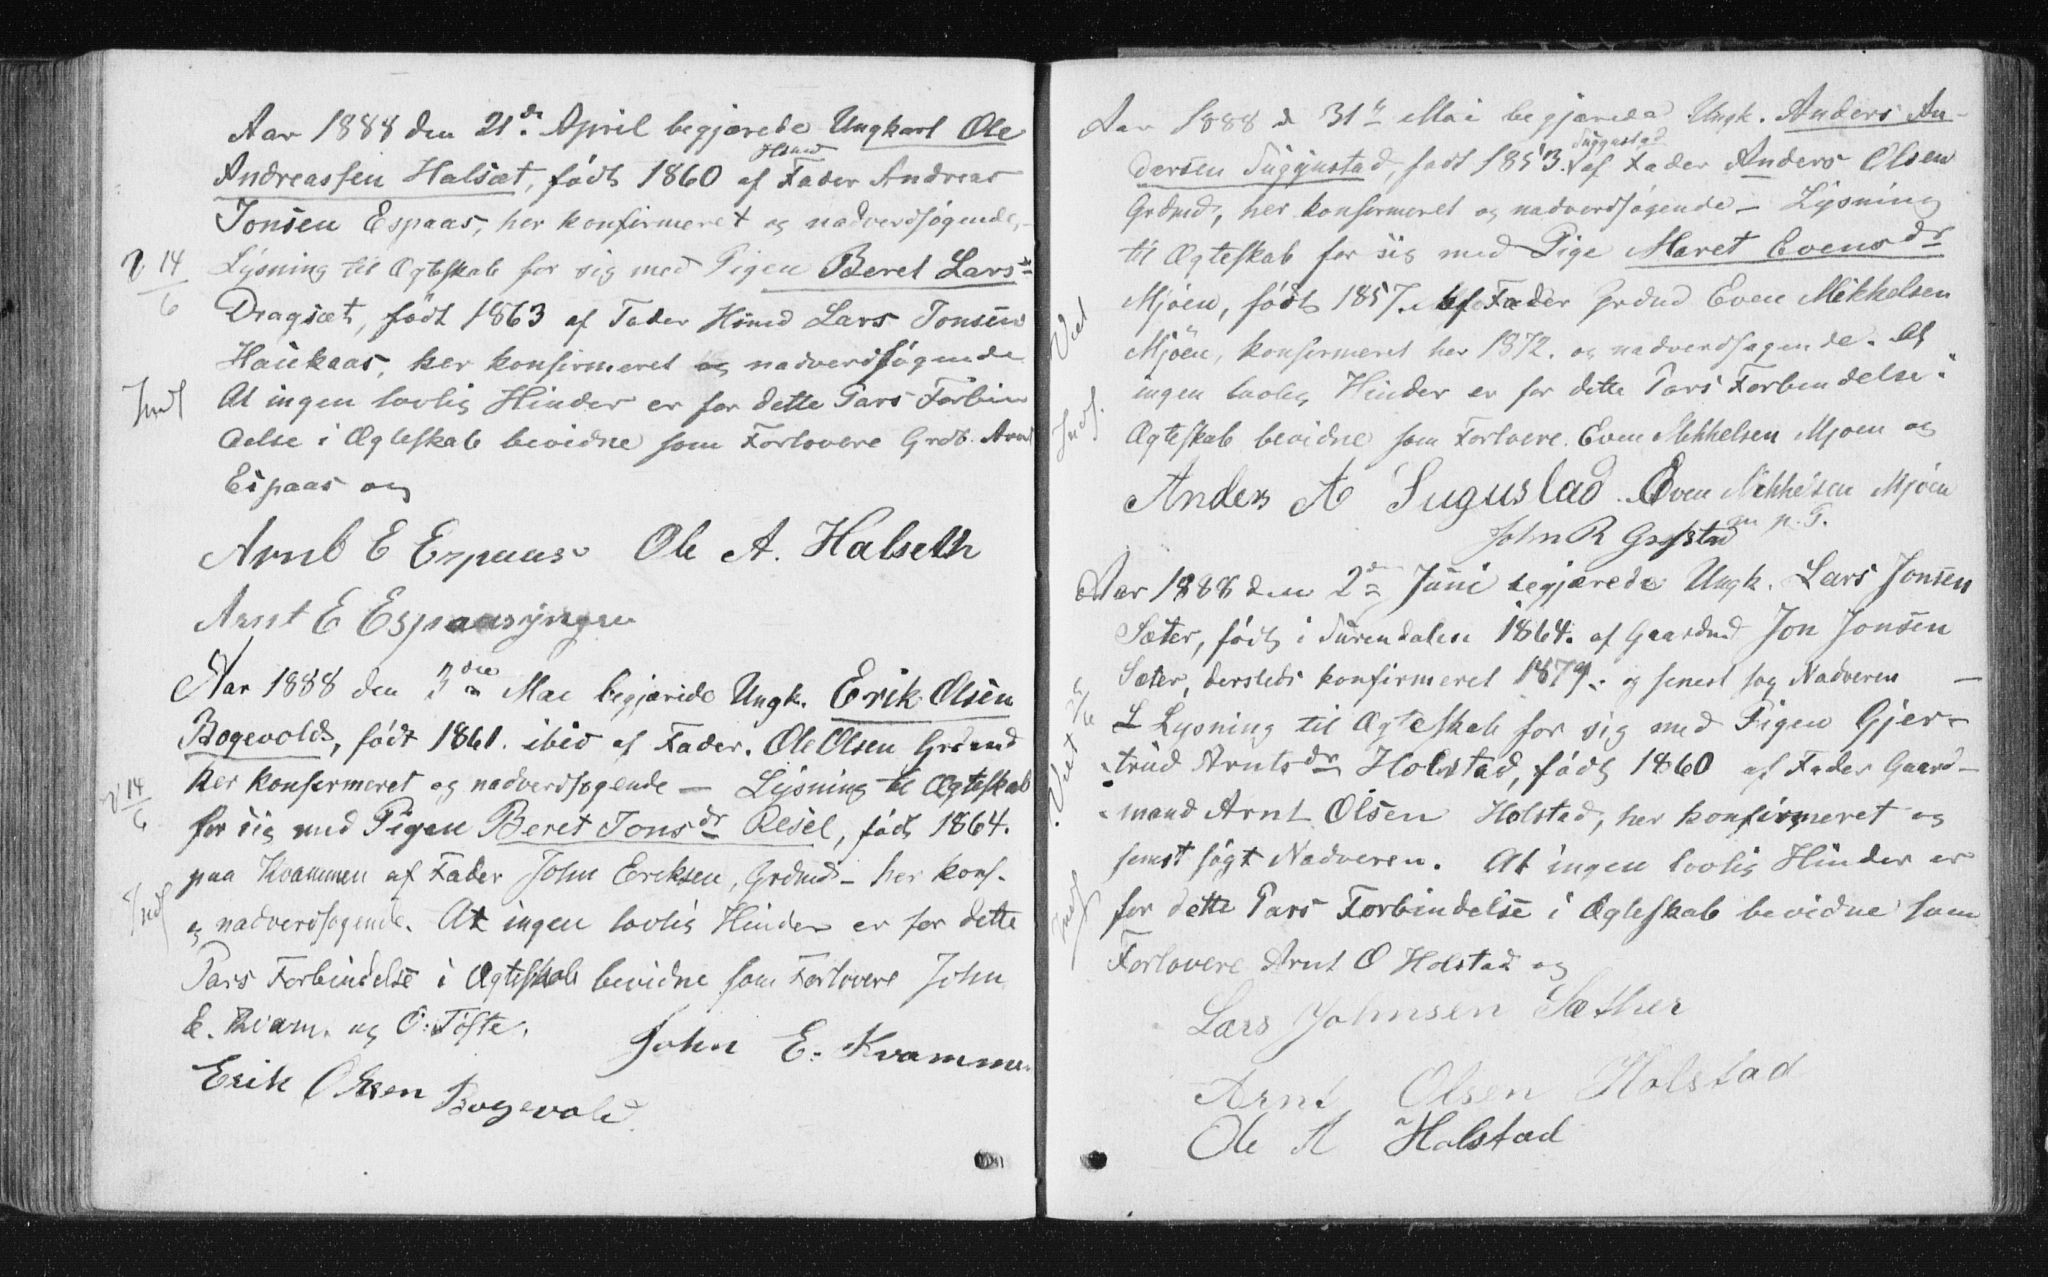 Aar 1888 den 21de April begjærede Ungkarl Ole
Andreassen Halsæt, født 1860 af Fader Andreas
Jonsen Espaas, her konfirmeret og nadverdsøgende,
V 14/6
Lysning til Ægteskab for sig med Pigen Beret Larsdr
Dragsæt, født 1863 af Fader Hsmd Lars Jonsen
Haukaas, her konfirmeret og nadverdsøgende
Indf
At ingen lovlig Hinder er for dette Pars Forbin
delse i Ægteskab bevidne som Forlovere Grdb. Arnt
Espaas og
Arnt E Espaas Ole A. Halseth
Arnt E Espaas
Aar 1888 den 3die Mai begjæride Ungk. Erik Olsen
Bogevolds, født 1861. ibid af Fader. Ole Olsen Grdmd
her konfirmeret og nadverdsøgende — Lysning til Ægteskab
V 14/6
for sig med Pigen Beret Jonsdr Resel, født 1864.
paa Kvammen af Fader John Eriksen, Grdmd – her konf.
Indf
og nadverdsøgende. At ingen lovlig Hinder er for dette
Pars Forbindelse i Ægteskab bevidne som Forlovere John
E. Kvam. og O: Tøfte.
John E. Kvamme
Erik Olsen Bogevold.
Aar 1888 d 31te Mai begjærede Ungk. Anders An-
dersen Suggustad, født 1853. af Fader Anders Olsen
Suggustad
Grdmd, her konfirmeret og nadverdsøgende — Lysning
til Ægteskab for sig med Pige Maret Evensdr
Mjøen, født 1857. af Fader Grdmd Even Mikkelsen
Mjøen, konfirmeret her 1872. og nadverdsøgende. At
ingen lovlig Hinder er for dette Pars Forbindelse i
Indf.
Ægteskab bevidne som Forlovere Even Mikkelsen Mjøen og
Anders A Sugustad. Even Mikkelsen Mjøen
m. p. P.
Aar 1888 den 2den Juni begjærede Ungk. Lars Jonsen
Sæter, født i Surendalen 1864. af Gaardmd Jon Jonsen
Sæter, dersteds konfirmeret 1879. og senest søg Nadveren —
Lysning til Ægteskab for sig med Pigen Gjer-
trud Arntsdr Holstad, født 1860 af Fader Gaard-
mand Arnt Olsen Holstad, her konfirmeret og
senest søgt Nadveren. At ingen lovlig Hinder er
Indf
for dette Pars Forbindelse i Ægteskab bevidne som
Forlovere Arnt O Holstad og
Lars Johnsen Sæther
Arnt Olsen Holstad
Ole A Holstad